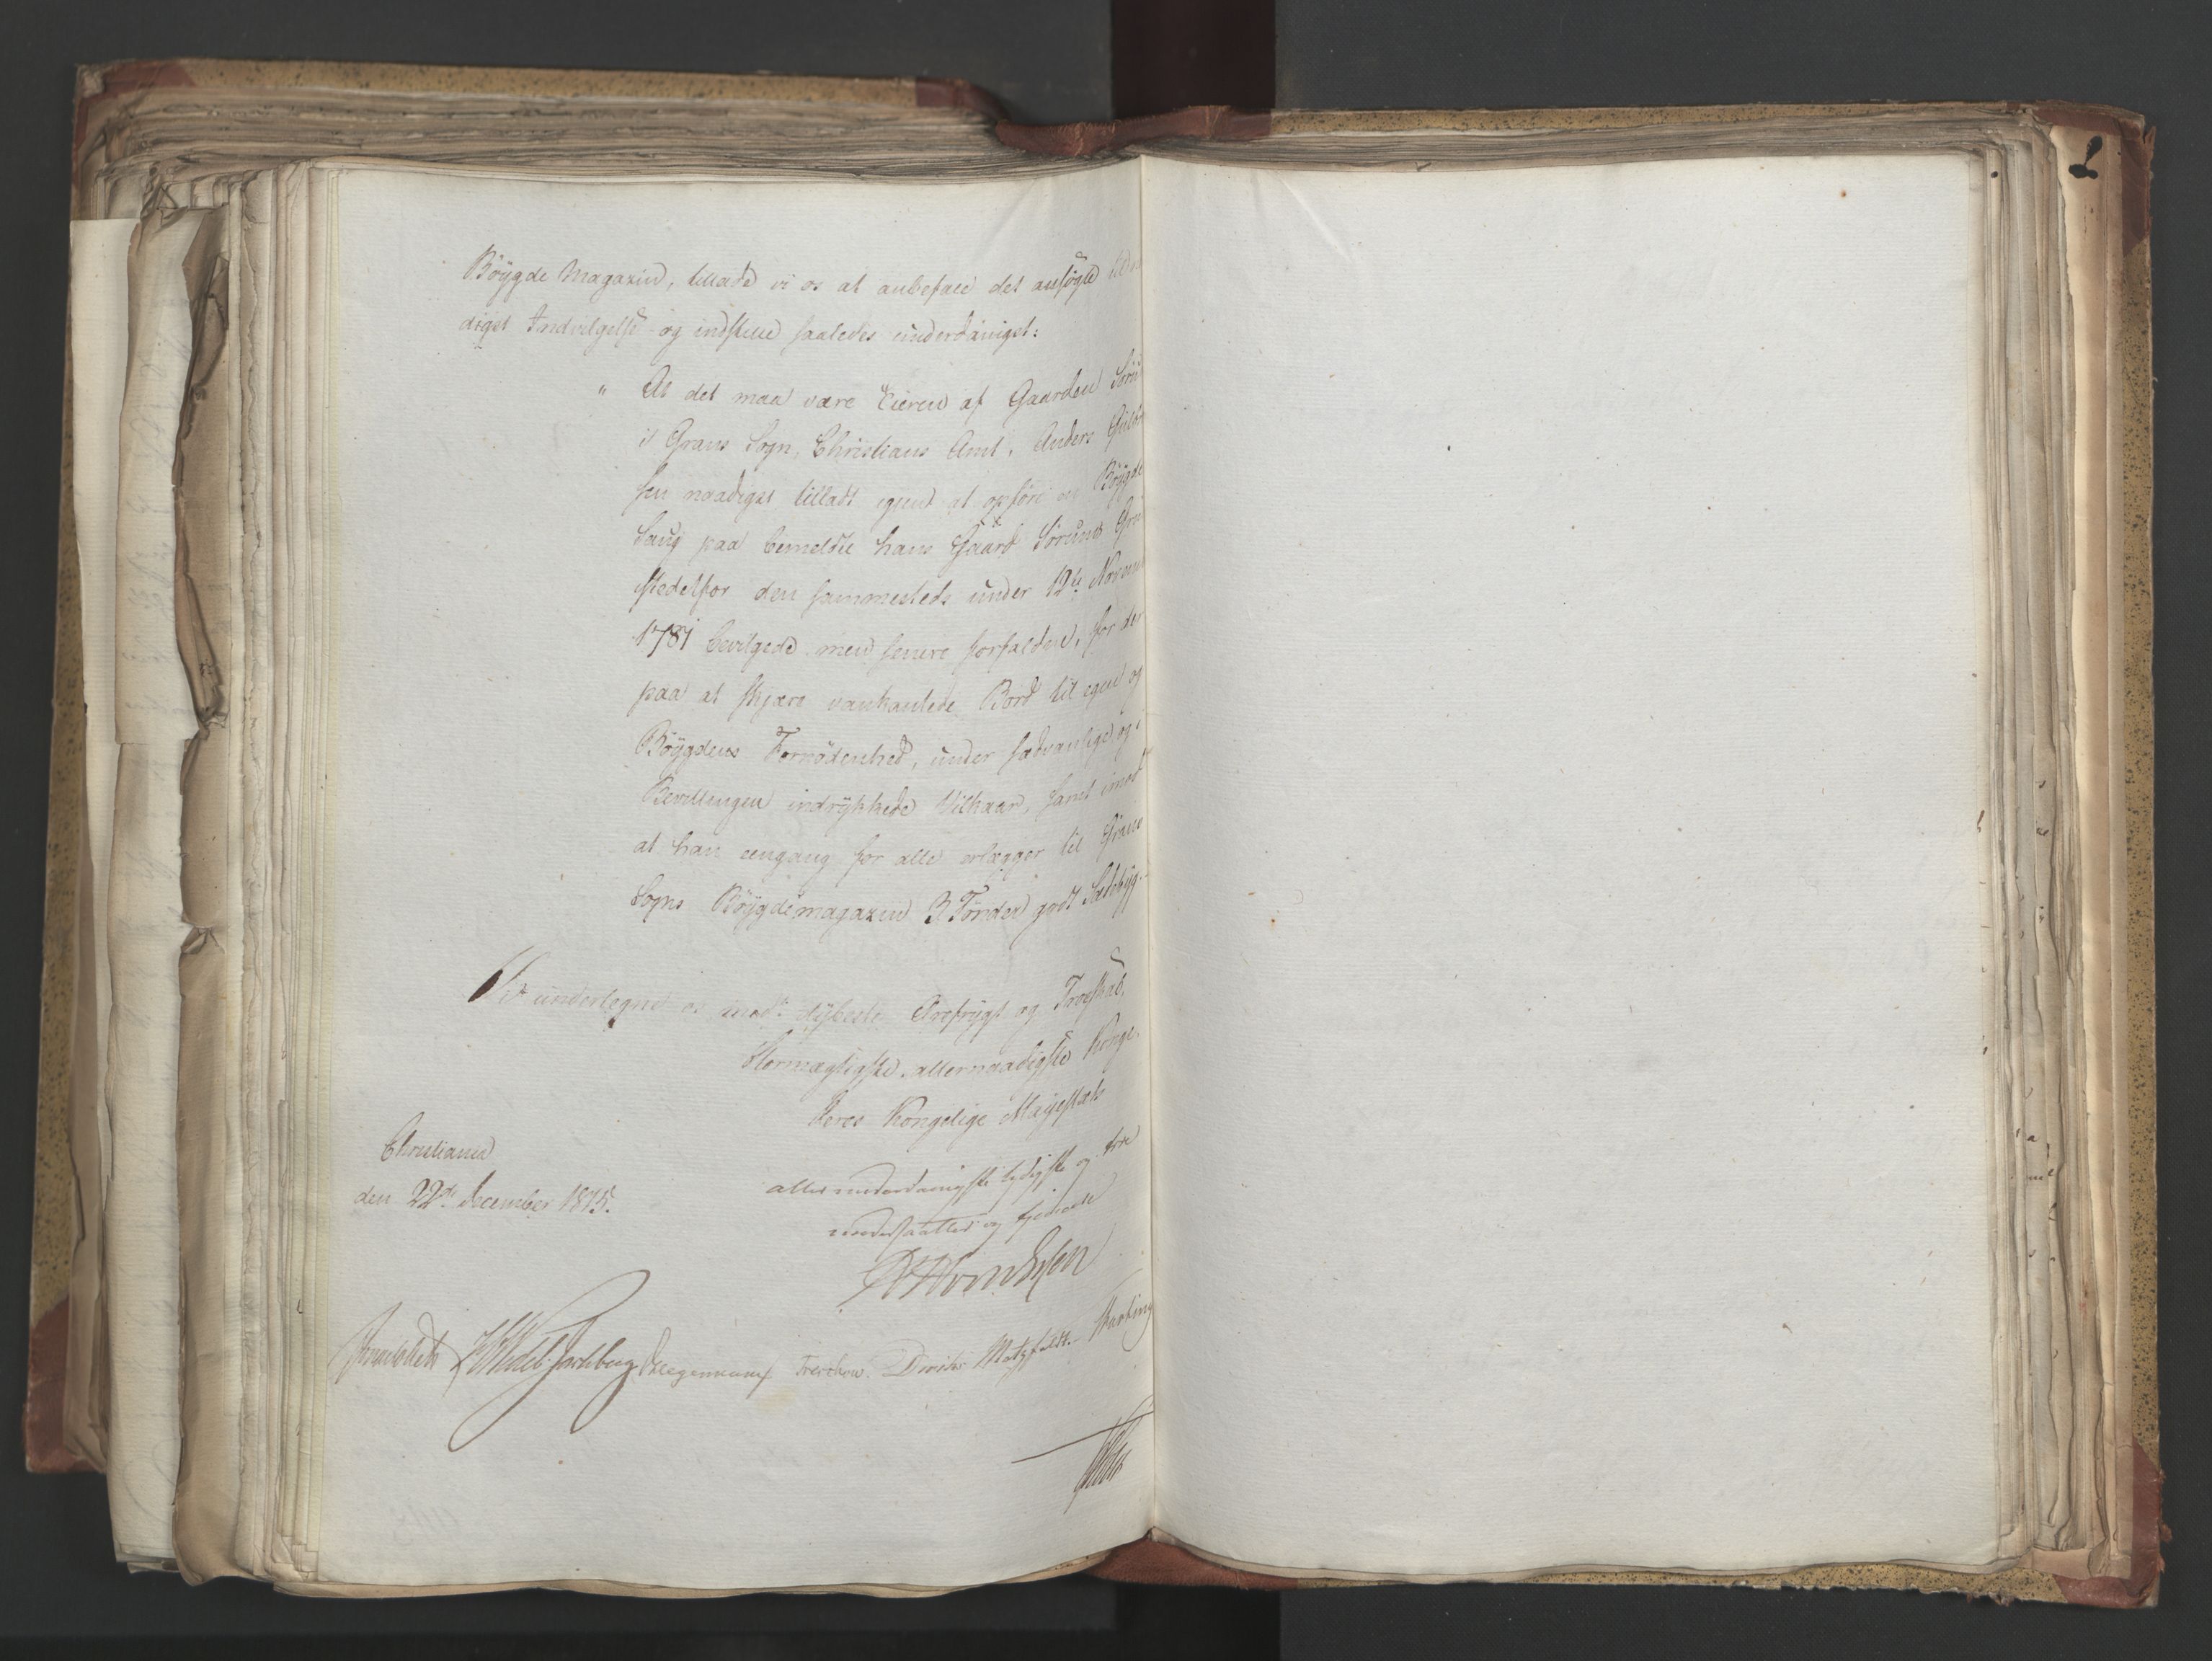 Böygde Magazin, tillade vi os at anbefale det ansögte til
digst Indvilgelse og indstille saaledes underdanigst:
" At det maa være Eieren af Gaarden
i Grans Sogn, Christians Amt, Anders
sen naadigst tilladt igjen at opföre en Böygde
Saug paa bemeldte hans Gaard Sörums
istedetfor den sammesteds under 12te Novem
1781 bevilgede men senere forfaldne, for der
paa at skjære vankantede Bord til egen og
Böygdens Fornödenhed, under sædvanlige og i
Bevillingen indrykkede Vilkaar, samt imod
at han eengang for alle erlægger til Grans
Sogns Böygdemagazin 3 Tönder godt Sædebyg.
Vi undertegne os med dybeste Ærefrygt og Troeskab,
Stormægtigste, allernaadigste Konge,
Deres Kongelige Majestæts
Christiania
den 22de December 1815.
allerunderdanigste lydigste og troe
undersaatter og tjenere
Sommerhielm
Wedel-Jarlsberg
Krogh Treschow. Diriks Motzfeldt.